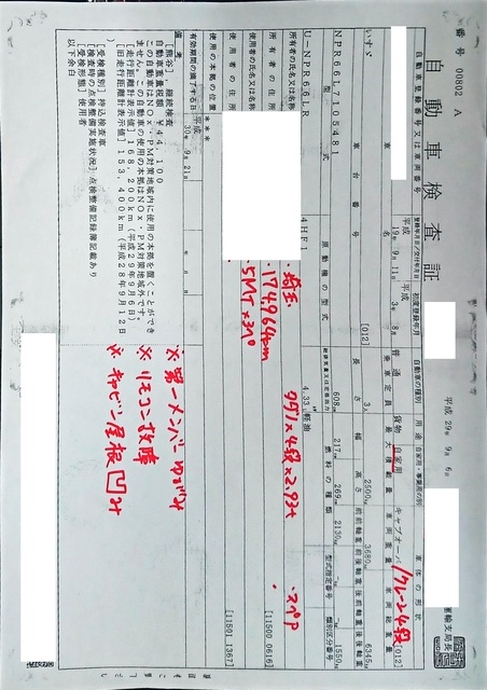 番号 00802 A
平成 29年 9月 6日
自動車検査証
運輸支局長
自動車登録番号又は車両番号
登録年月日/交付年月日
初度登録年月
自動車の種別
用途
自家用・事業用の別
車体の形状
平成 19年 9月 11日
平成 3年 8月
普通
貨物
自家用
キャブオーバ
[012]
クレーン4段
車名
乗車定員
最大積載量
車両重量
車両総重量
いすゞ
[012]
3人
2500kg
3680kg
6345kg
車台番号
長さ
幅
高さ
前前軸重
前後軸重
後前軸重
後後軸重
NPR66L7105481
608cm
217cm
269cm
2130kg
-kg
-kg
1550kg
型式
原動機の型式
総排気量又は定格出力
燃料の種類
型式指定番号
類別区分番号
U-NPR66LR
4HF1
4.33
軽油
所有者の氏名又は名称
・埼玉
タダノ×4段×2.93t
・スペP
所有者の住所
・174,964km
[11500 0616]
使用者の氏名又は名称
・5MT×3P
使用者の住所
[11501 1367]
使用の本拠の位置
***
有効期間の満了する日
平成 30年 9月 21日
備考
[熊谷] 継続検査
自動車重量税額 ¥44,100
この自動車はNOx・PM対策地域内に使用の本拠を置くことができ
ません。この自動車の使用の本拠はNOx・PM対策地域外です。
[走行距離計表示値] 168,200km (平成29年9月6日)
[旧走行距離計表示値] 153,400km (平成28年9月12日)
[受検種別] 持込検査車
[検査時の点検整備実施状況] 点検整備記録簿記載あり
[受検形態] 使用者
以下余白
※第一メンバーゆがみ
※リモコン故障
※キャビン屋根凹み